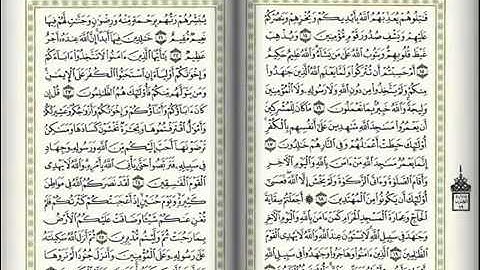 قَٰتِلُوهُمْ يُعَذِّبْهُمُ ٱللَّهُ بِأَيْدِيكُمْ وَيُخْزِهِمْ وَيَنصُرْكُمْ
عَلَيْهِمْ وَيَشْفِ صُدُورَ قَوْمٍ مُّؤْمِنِينَ ١٤ وَيُذْهِبْ
غَيْظَ قُلُوبِهِمْ وَيَتُوبُ ٱللَّهُ عَلَىٰ مَن يَشَآءُ وَٱللَّهُ عَلِيمٌ حَكِيمٌ
١٥ أَمْ حَسِبْتُمْ أَن تُتْرَكُوا۟ وَلَمَّا يَعْلَمِ ٱللَّهُ ٱلَّذِينَ جَٰهَدُوا۟
مِنكُمْ وَلَمْ يَتَّخِذُوا۟ مِن دُونِ ٱللَّهِ وَلَا رَسُولِهِۦ وَلَا ٱلْمُؤْمِنِينَ
وَلِيجَةً وَٱللَّهُ خَبِيرٌۢ بِمَا تَعْمَلُونَ ١٦ مَا كَانَ لِلْمُشْرِكِينَ
أَن يَعْمُرُوا۟ مَسَٰجِدَ ٱللَّهِ شَٰهِدِينَ عَلَىٰٓ أَنفُسِهِم بِٱلْكُفْرِ
أُو۟لَٰٓئِكَ حَبِطَتْ أَعْمَٰلُهُمْ وَفِى ٱلنَّارِ هُمْ خَٰلِدُونَ ١٧
إِنَّمَا يَعْمُرُ مَسَٰجِدَ ٱللَّهِ مَنْ ءَامَنَ بِٱللَّهِ وَٱلْيَوْمِ ٱلْءَاخِرِ
وَأَقَامَ ٱلصَّلَوٰةَ وَءَاتَى ٱلزَّكَوٰةَ وَلَمْ يَخْشَ إِلَّا ٱللَّهَ فَعَسَىٰٓ
أُو۟لَٰٓئِكَ أَن يَكُونُوا۟ مِنَ ٱلْمُهْتَدِينَ ١٨ أَجَعَلْتُمْ سِقَايَةَ
ٱلْحَآجِّ وَعِمَارَةَ ٱلْمَسْجِدِ ٱلْحَرَامِ كَمَنْ ءَامَنَ بِٱللَّهِ وَٱلْيَوْمِ ٱلْءَاخِرِ
وَجَٰهَدَ فِى سَبِيلِ ٱللَّهِ لَا يَسْتَوُۥنَ عِندَ ٱللَّهِ وَٱللَّهُ لَا يَهْدِى ٱلْقَوْمَ
ٱلظَّٰلِمِينَ ١٩ ٱلَّذِينَ ءَامَنُوا۟ وَهَاجَرُوا۟ وَجَٰهَدُوا۟ فِى سَبِيلِ ٱللَّهِ
يُبَشِّرُهُمْ رَبُّهُم بِرَحْمَةٍ مِّنْهُ وَرِضْوَٰنٍ وَجَنَّٰتٍ لَّهُمْ فِيهَا
نَعِيمٌ مُّقِيمٌ ٢١ خَٰلِدِينَ فِيهَآ أَبَدًا إِنَّ ٱللَّهَ عِندَهُۥٓ أَجْرٌ
عَظِيمٌ ٢٢ يَٰٓأَيُّهَا ٱلَّذِينَ ءَامَنُوا۟ لَا تَتَّخِذُوٓا۟ ءَابَآءَكُمْ
وَإِخْوَٰنَكُمْ أَوْلِيَآءَ إِنِ ٱسْتَحَبُّوا۟ ٱلْكُفْرَ عَلَى ٱلْإِيمَٰنِ
وَمَن يَتَوَلَّهُم مِّنكُمْ فَأُو۟لَٰٓئِكَ هُمُ ٱلظَّٰلِمُونَ ٢٣ قُلْ إِن
كَانَ ءَابَآؤُكُمْ وَأَبْنَآؤُكُمْ وَإِخْوَٰنُكُمْ وَأَزْوَٰجُكُمْ وَعَشِيرَتُكُمْ
وَأَمْوَٰلٌ ٱقْتَرَفْتُمُوهَا وَتِجَٰرَةٌ تَخْشَوْنَ كَسَادَهَا وَمَسَٰكِنُ
تَرْضَوْنَهَآ أَحَبَّ إِلَيْكُم مِّنَ ٱللَّهِ وَرَسُولِهِۦ وَجِهَادٍ
فِى سَبِيلِهِۦ فَتَرَبَّصُوا۟ حَتَّىٰ يَأْتِىَ ٱللَّهُ بِأَمْرِهِۦ وَٱللَّهُ لَا يَهْدِى
ٱلْقَوْمَ ٱلْفَٰسِقِينَ ٢٤ لَقَدْ نَصَرَكُمُ ٱللَّهُ فِى مَوَاطِنَ
كَثِيرَةٍ وَيَوْمَ حُنَيْنٍ إِذْ أَعْجَبَتْكُمْ كَثْرَتُكُمْ فَلَمْ
تُغْنِ عَنكُمْ شَيْـًٔا وَضَاقَتْ عَلَيْكُمُ ٱلْأَرْضُ
بِمَا رَحُبَتْ ثُمَّ وَلَّيْتُم مُّدْبِرِينَ ٢٥ ثُمَّ أَنزَلَ ٱللَّهُ سَكِينَتَهُۥ
عَلَىٰ رَسُولِهِۦ وَعَلَى ٱلْمُؤْمِنِينَ وَأَنزَلَ جُنُودًا لَّمْ تَرَوْهَا